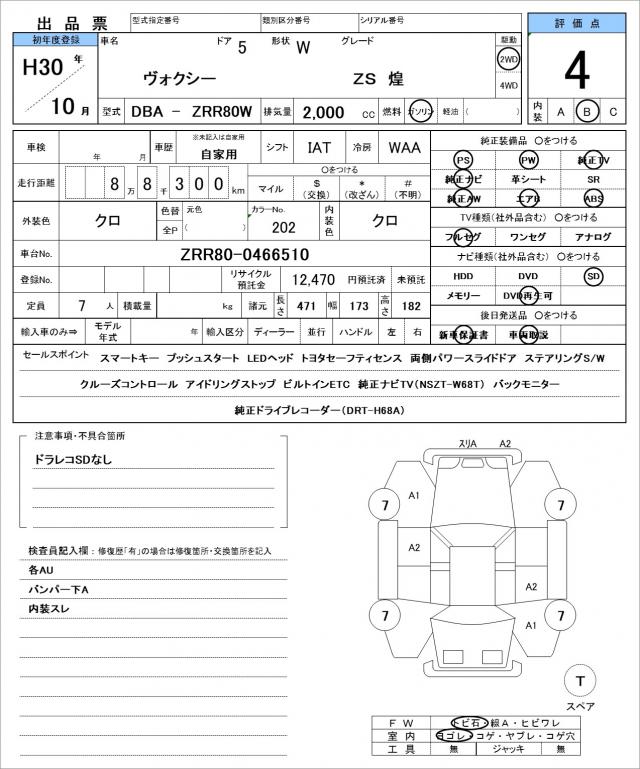 出品票
型式指定番号 類別区分番号 シリアル番号
評価点
初年度登録 車名 ドア 5 形状 W グレード 駆動
H30 年 ヴォクシー ZS 煌 2WD 4
4WD
10 月 型式 DBA － ZRR80W 排気量 2,000 cc 燃料 ガソリン 軽油 ( ) 内装 A B C
車検 年 月 車歴 ※未記入は自家用 自家用 シフト IAT 冷房 WAA 純正装備品 〇をつける
PS PW 純正TV
走行距離 8 万 8 千 3 0 0 km 〇をつける
マイル $ (交換) * (改ざん) # (不明) 純正ナビ 革シート SR
純正AW エアB ABS
外装色 クロ 色替 元色 カラーNo. 内装色 クロ
全P ( ) 202
TV種類(社外品含む) 〇をつける
フルセグ ワンセグ アナログ
車台No. ZRR80-0466510 ナビ種類(社外品含む) 〇をつける
登録No. リサイクル預託金 12,470 円預託済 未預託 HDD DVD SD
定員 7 人 積載量 kg 諸元 長さ 471 幅 173 高さ 182 メモリー DVD再生可
後日発送品 〇をつける
輸入車のみ⇒ モデル年式 年 輸入区分 ディーラー 並行 ハンドル 左 右 新車保証書 車両取説
セールスポイント スマートキー プッシュスタート LEDヘッド トヨタセーフティセンス 両側パワースライドドア ステアリングS/W
クルーズコントロール アイドリングストップ ビルトインETC 純正ナビTV(NSZT-W68T) バックモニター
純正ドライブレコーダー(DRT-H68A)
注意事項・不具合箇所
ドラレコSDなし
検査員記入欄：修復歴「有」の場合は修復箇所・交換箇所を記入
各AU
バンパー下A
内装スレ
スリA A2
A1
7 7
A2
A2
7 A1 7
T
スペア
FW トビ石・線A・ヒビワレ
室内 ヨゴレ・コゲ・ヤブレ・コゲ穴
工具 無 ジャッキ 無